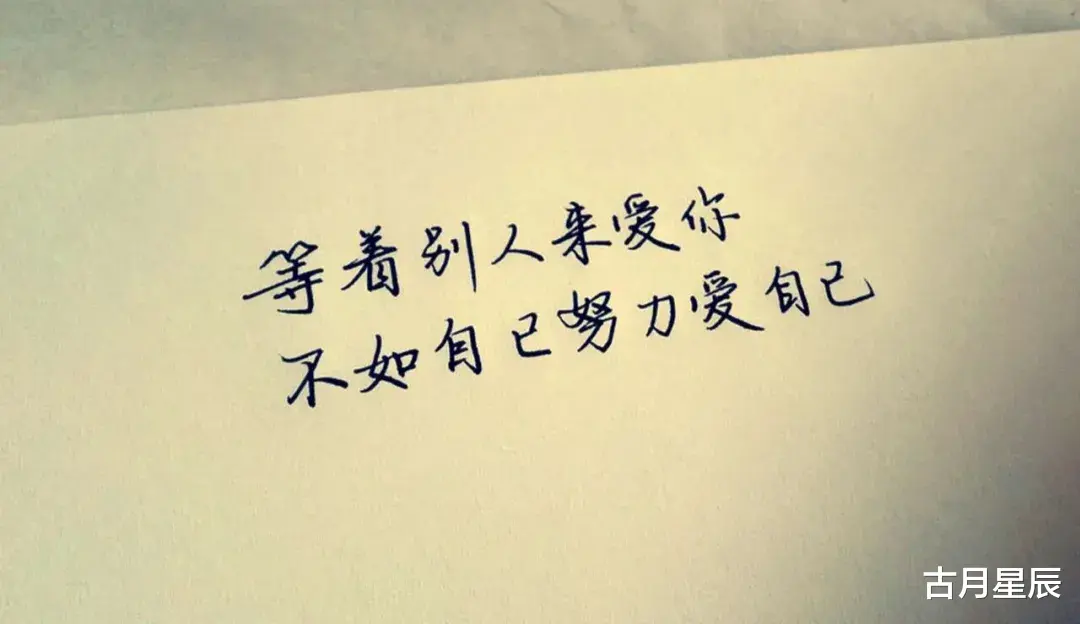 等着别人来爱你
不如自己努力爱自己
古月星辰